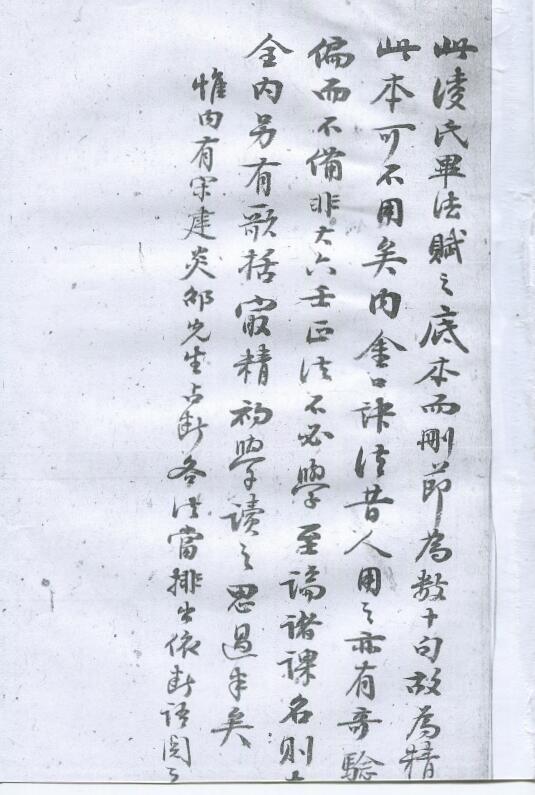 此凌氏畢法賦之底本而刪節為數十句故為精
此本可不用矣內金口訣法昔人用之亦有奇驗
偏而不備非大六壬正法不必學至論諸課名則
全內另有歌括最精初學讀之思過半矣
惟內有宋建炎邵先生占斷各法當排出依斷語閱之